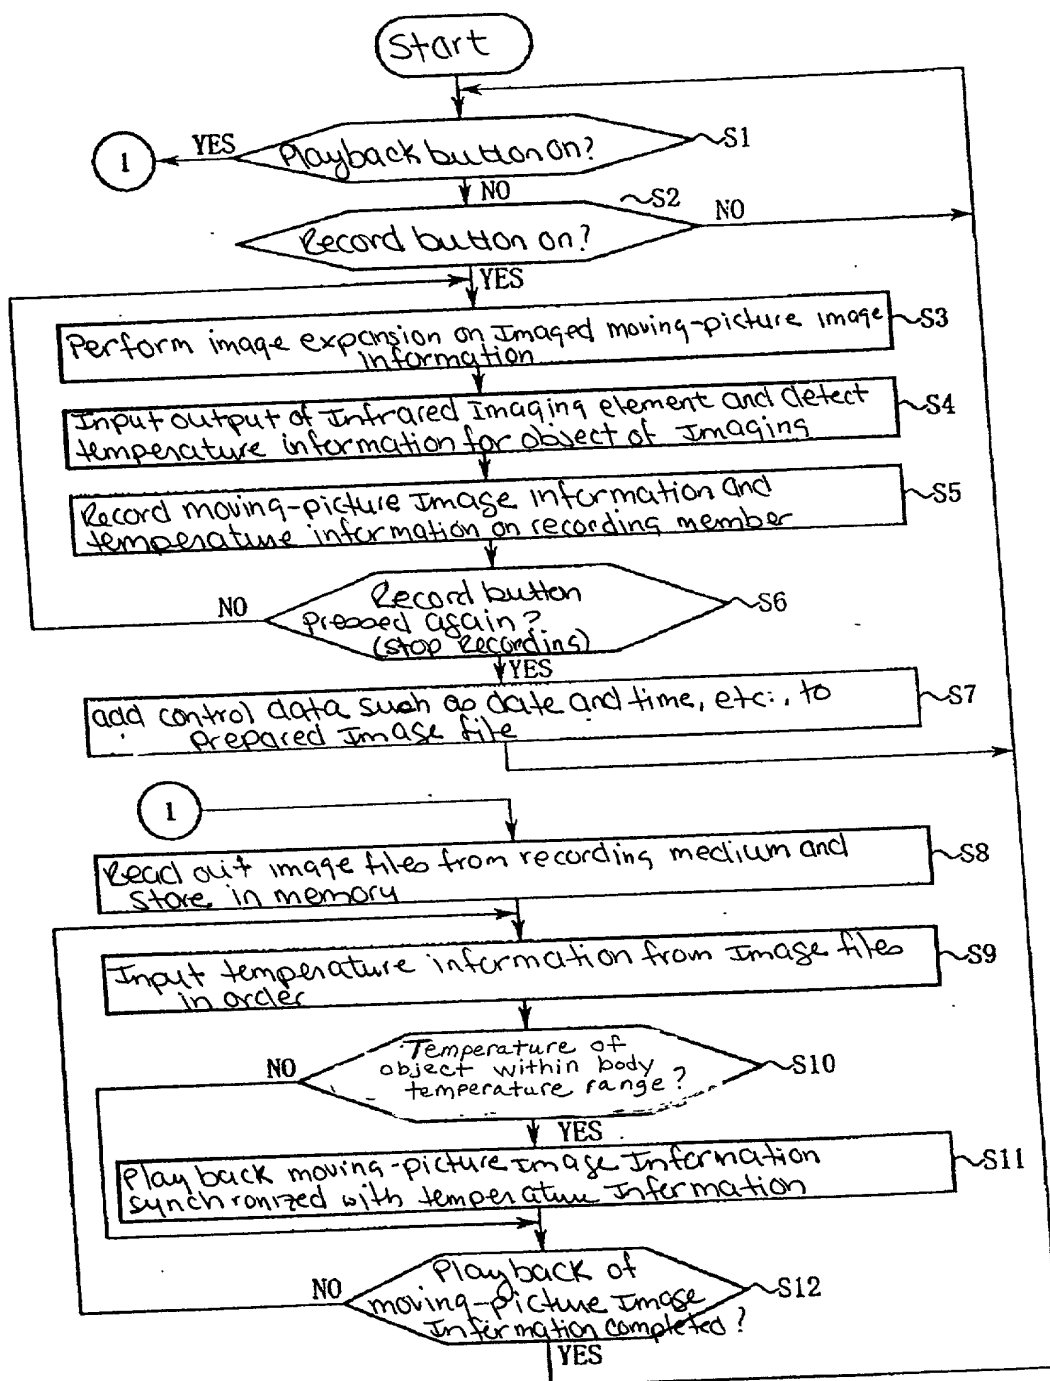 Start
1
YES
Playback button on?
S1
NO
S2
Record button on?
NO
YES
Perform image expansion on Imaged moving-picture image
information
S3
Input output of Infrared Imaging element and detect
temperature information for object of Imaging
S4
Record moving-picture Image information and
temperature information on recording member
S5
NO
Record button
pressed again?
(stop Recording)
S6
YES
add control data such as date and time, etc., to
prepared Image file
S7
1
Read out image files from recording medium and
store in memory
S8
Input temperature information from Image files
in order
S9
NO
Temperature of
object within body
temperature range?
S10
YES
Playback moving-picture Image Information
synchronized with temperature Information
S11
NO
Playback of
moving-picture Image
Information completed?
S12
YES